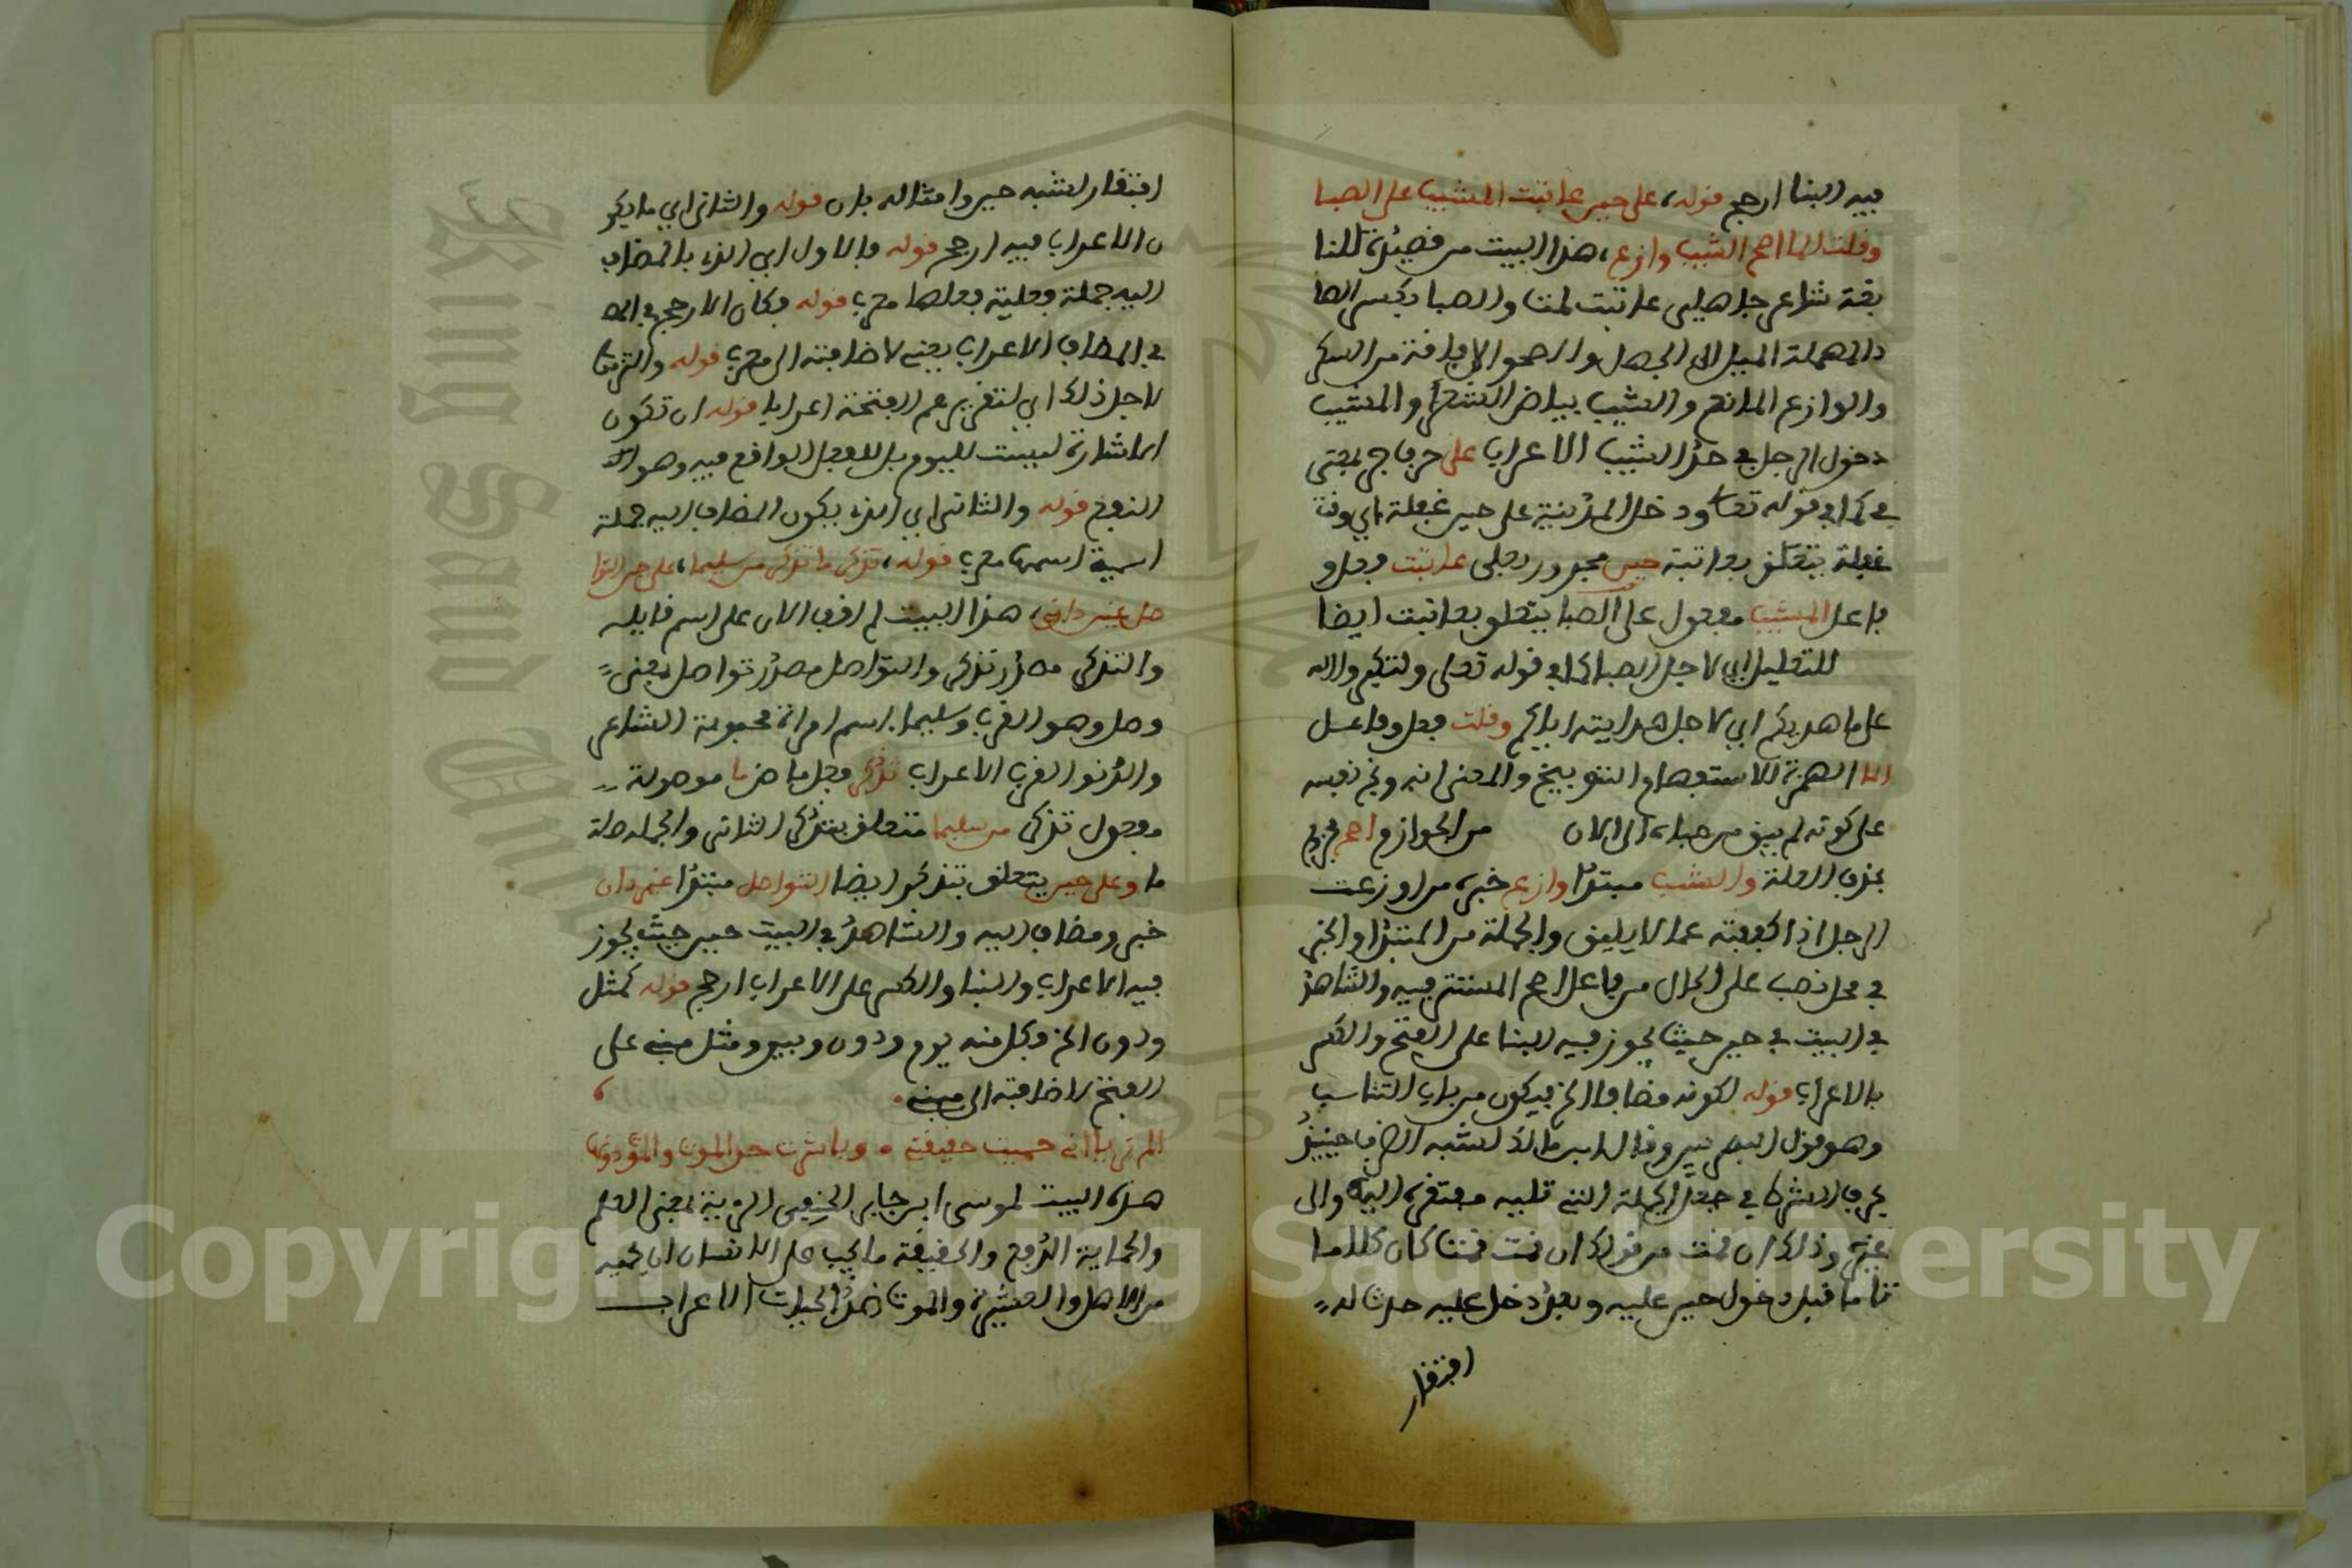 فيه البنا ارجح قوله، على حين عاتبت المشيب على الصبا
وقلت الما اصح الشيب وازع، هذا البيت من قصيدة للنا
بغة شاعر جاهلي عاتبت لمت والصبا بكسر الصا
د المهملة الميل الى الجهل والصحو الافاقة من السكر
والوازع المانع والشيب بياض الشعر والمشيب
دخول الرجل في حد الشيب الاعراب على حرف جر بمعنى
في كما في قوله تعالى ودخل المدينة على حين غفلة اي وقت
غفلة يتعلق بعاتبت حين مجرور بعلى عاتبت فعل و
فاعل المشيب مفعول على الصبا يتعلق بعاتبت ايضا
للتعليل اي لاجل الصبا كما في قوله تعلى ولتكبروا الله
على ما هديكم اي لاجل هدايته اياكم وقلت فعل وفاعل
الما الهمزة للاستفهام والتوبيخ والمعنى انه وبخ نفسه
على كونه لم يفق من صباه الى الان من الجوازم اصح مجزوم
بحذف العلة والشيب مبتدا وازع خبره من اوزعت
الرجل اذا كففته عما لا يليق والجملة من المبتدا والخبر
في محل نصب على الحال من فاعل اصح المستتر فيه والشاهد
في البيت في حين حيث يجوز فيه البنا على الفتح والكسر
بالاعراب قوله لكونه مضافا الخ فيكون من باب التناسب
وهو قول البصريين وقال ابن مالك لشبه الظرف حينئذ
بحرف الشرط في جعل الجملة التي تليه مفتقرة اليه والى
غيره وذلك ان قمت من قولك ان قمت قمت كان كلاما
تاما قبل دخول حين عليه وبعد دخل عليه حدث له
افتقار
افتقار لشبه حين وامثاله بان قوله والثاني اي ما يكو
ن الاعراب فيه ارجح قوله فالاول اي الذي بالمضاف
اليه جملة فعلية فعلها معرب قوله فكان الارجح في المضا
في المضاف الاعراب يعني لاضافته الى معرب قوله والتزما
لاجل ذلك اي لتقرير عم الفتحة اعرابا قوله ان تكون
الاشارة ليست لليوم بل للفعل الواقع فيه وهو
النفع قوله والثاني اي الذي يكون المضاف اليه جملة
اسمية اسمها معرب قوله، تذكر ما تذكر من سليما، على حين التوا
صل غير دان، هذا البيت لم اقف الان على اسم قايله
والتذكر مصدر تذكر والتواصل مصدر تواصل بمعنى
وصل وهو القرب وسليما اسم امراة محبوبة الشاعر
والدنو القرب الاعراب تذكر فعل ماض ما موصولة
مفعول تذكر من سليما متعلق بتذكر الثاني والجملة صلة
ما وعلى حين يتعلق بتذكر ايضا التواصل مبتدا غير دان
خبر ومضاف اليه والشاهد في البيت حين حيث يجوز
فيه الاعراب والبنا والكسر على الاعراب ارجح قوله كمثل
ودون الخ وكل منه يوم ودون وبين ومثل مبني على
الفتح لاضافته الى مبني
الم تريا اني حميت حقيقتي وباشرت حد الموت والموت دونها
هذا البيت لموسى ابن جابر الحنفي الروية بمعنى العلم
والحماية الدفع والحقيقة ما يجب على الانسان ان يحميه
من الاهل والعشيرة والموت ضد الحيات الاعراب